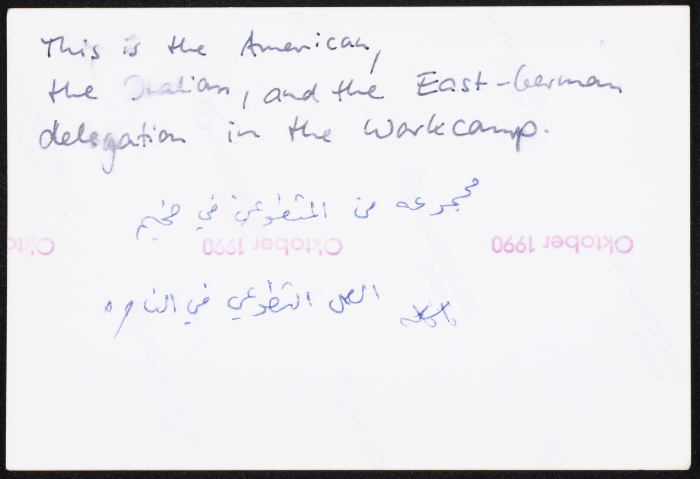 This is the American,
the Italian, and the East-German
delegation in the Workcamp.
مجموعه من المتطوعين في مخيم
Oktober 1990 Oktober 1990 Okto
العمل التطوعي في الناصره